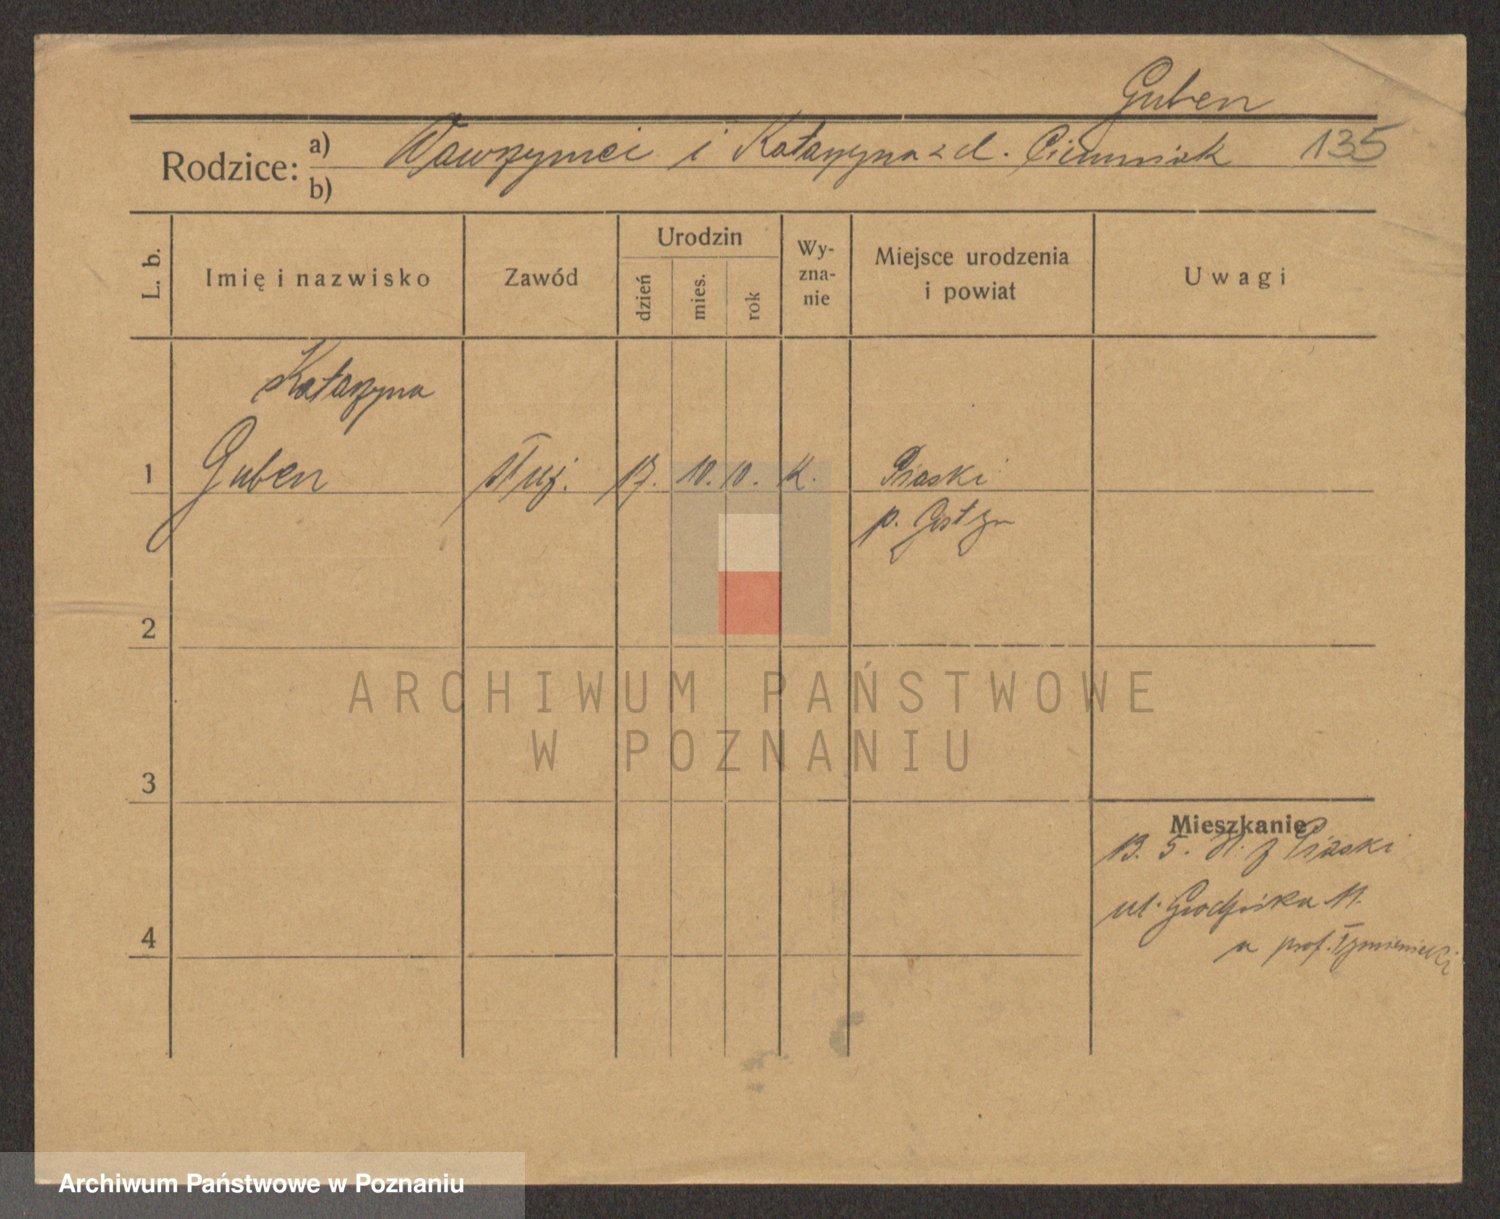 Guben
Rodzice: a) Wawrzyniec i Katarzyna z d. Ciemniak 135
b)
L. b.
Imię i nazwisko
Zawód
Urodzin
dzień
mies.
rok
Wy-
zna-
nie
Miejsce urodzenia
i powiat
Uwagi
Katarzyna
1 Guben służ. 17. 10. 10. K. Piaski
p. Gostyń
2
ARCHIWUM PAŃSTWOWE
W POZNANIU
3
Mieszkanie
13. 5. z Piaski
ul. Grodziska 11.
4
u prof. Tymieniecki
Archiwum Państwowe w Poznaniu